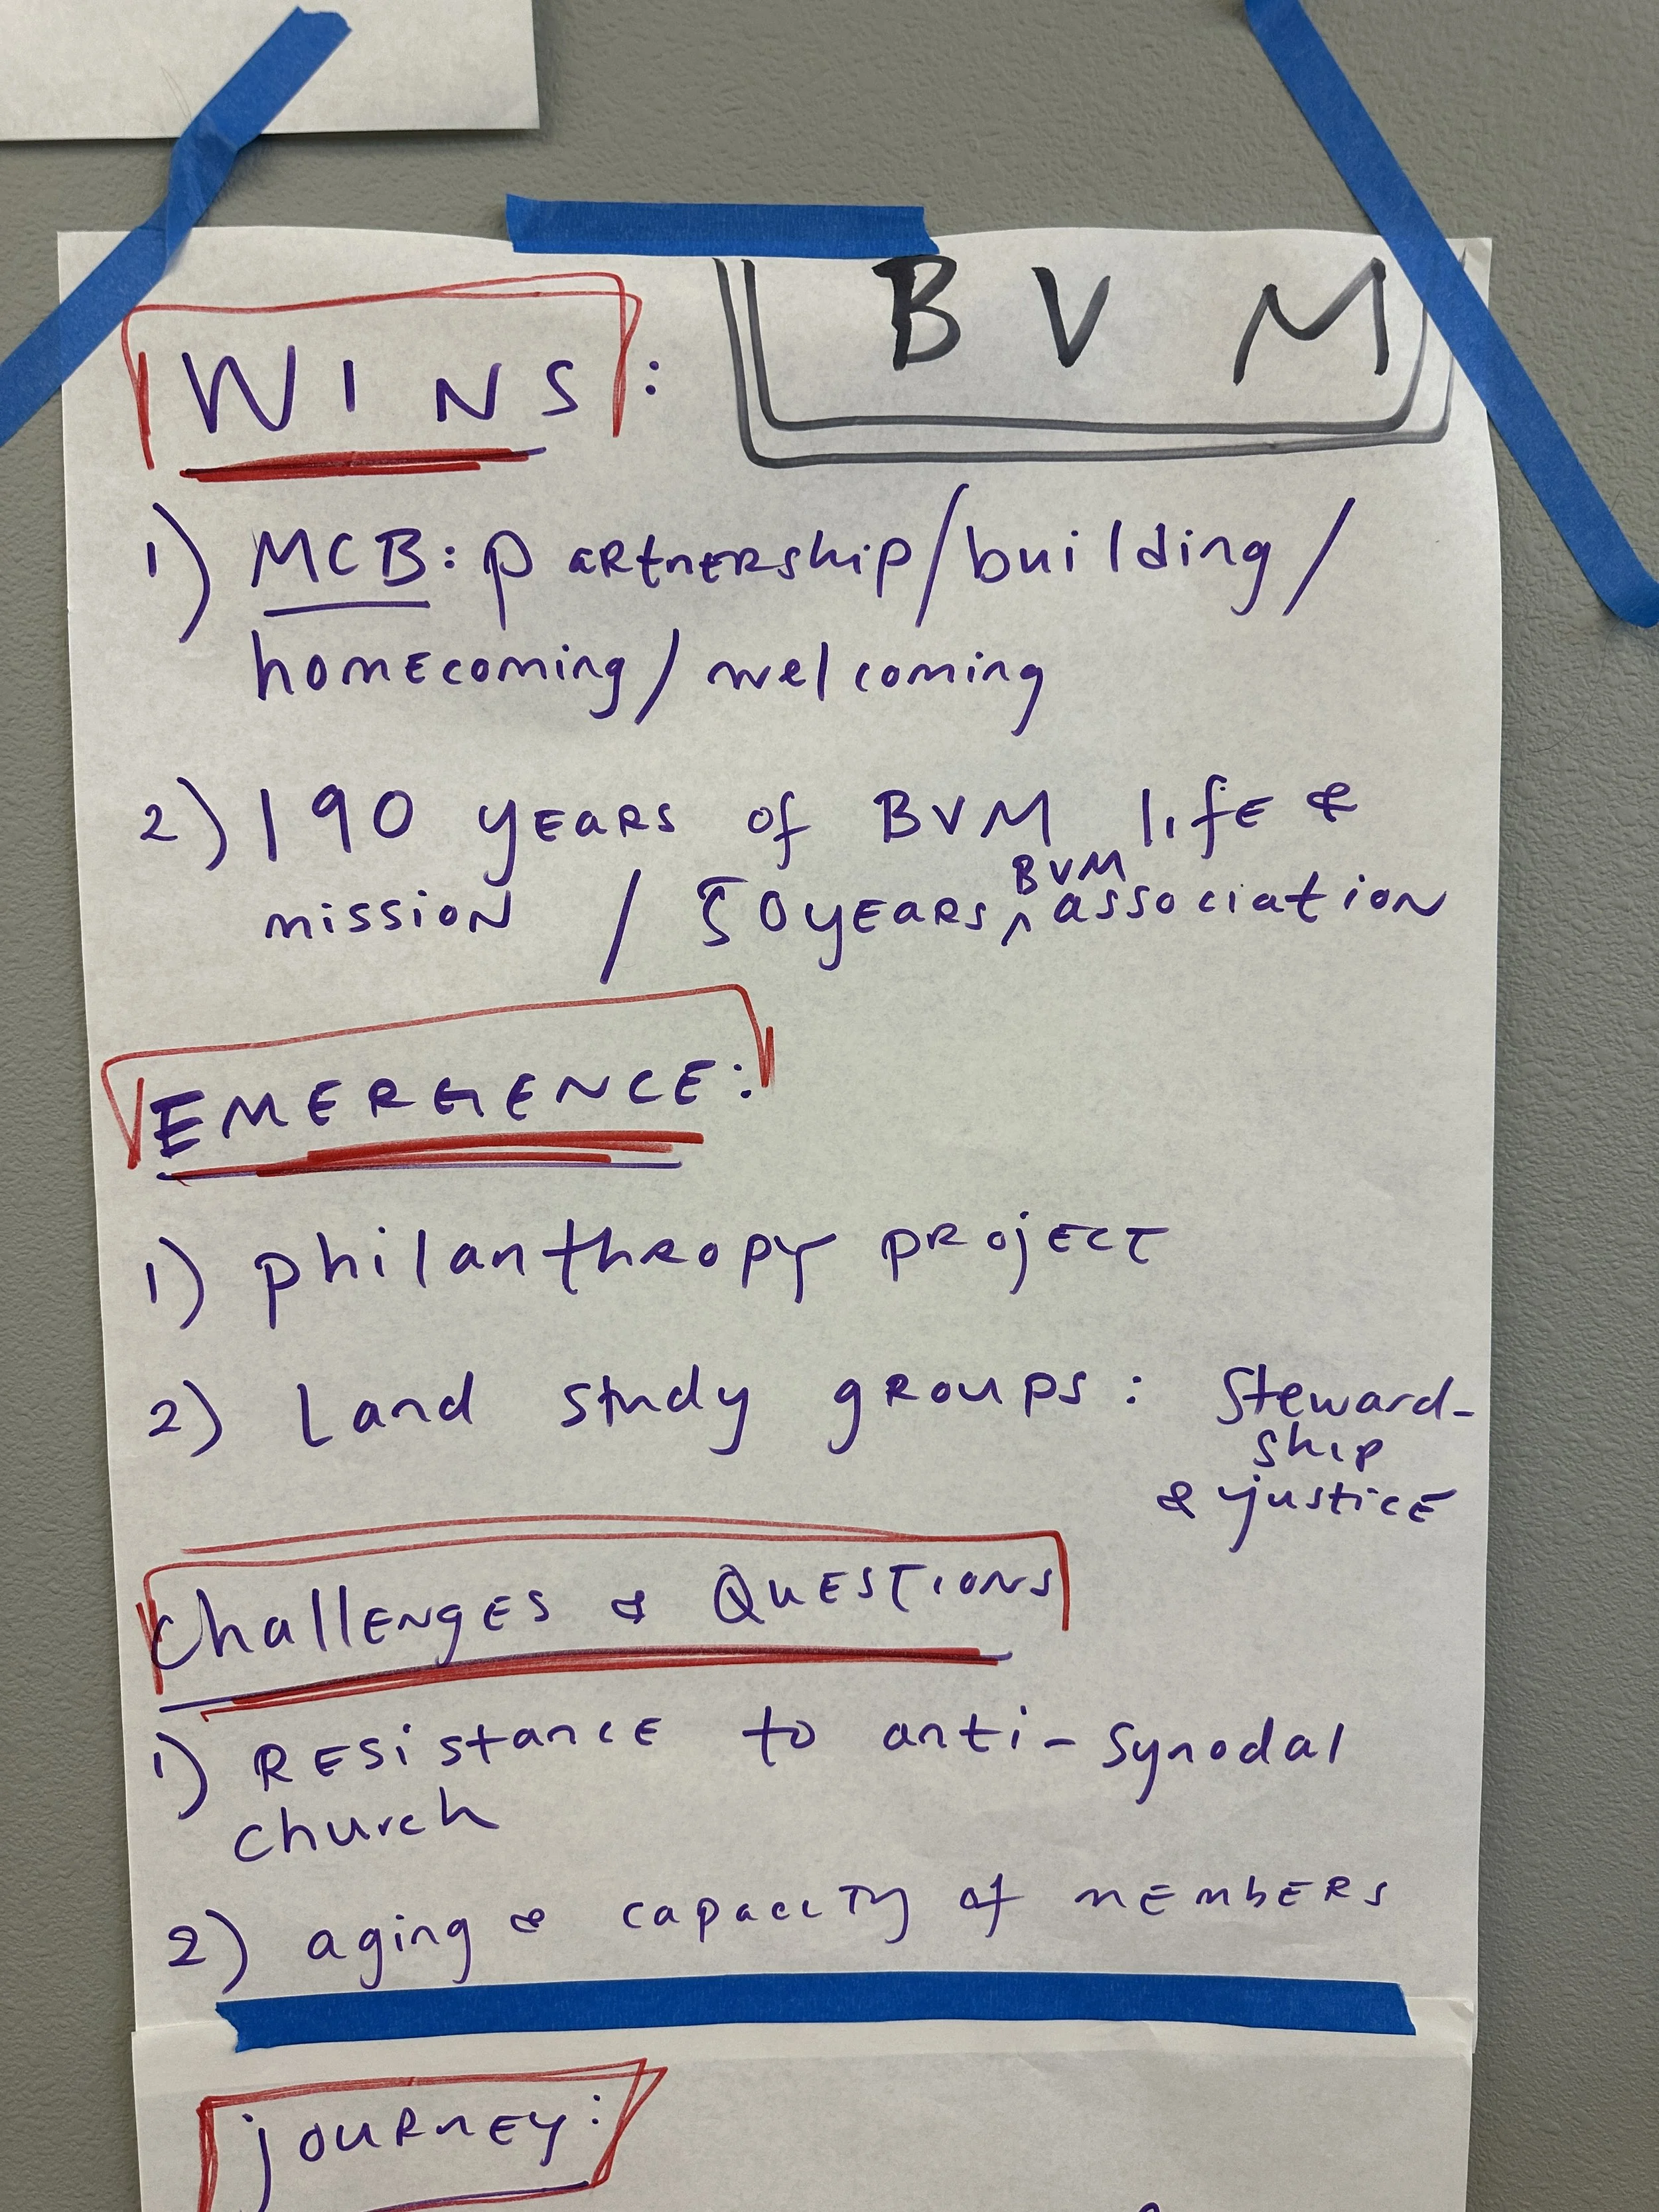 BVM
WINS:
1) MCB: partnership/building/
homecoming/welcoming
2) 190 years of BVM life &
mission / 50 years ^ BVM association
EMERGENCE:
1) philanthropy project
2) Land study groups: Steward-
ship
& justice
Challenges & Questions
1) Resistance to anti-synodal
church
2) aging & capacity of members
journey: